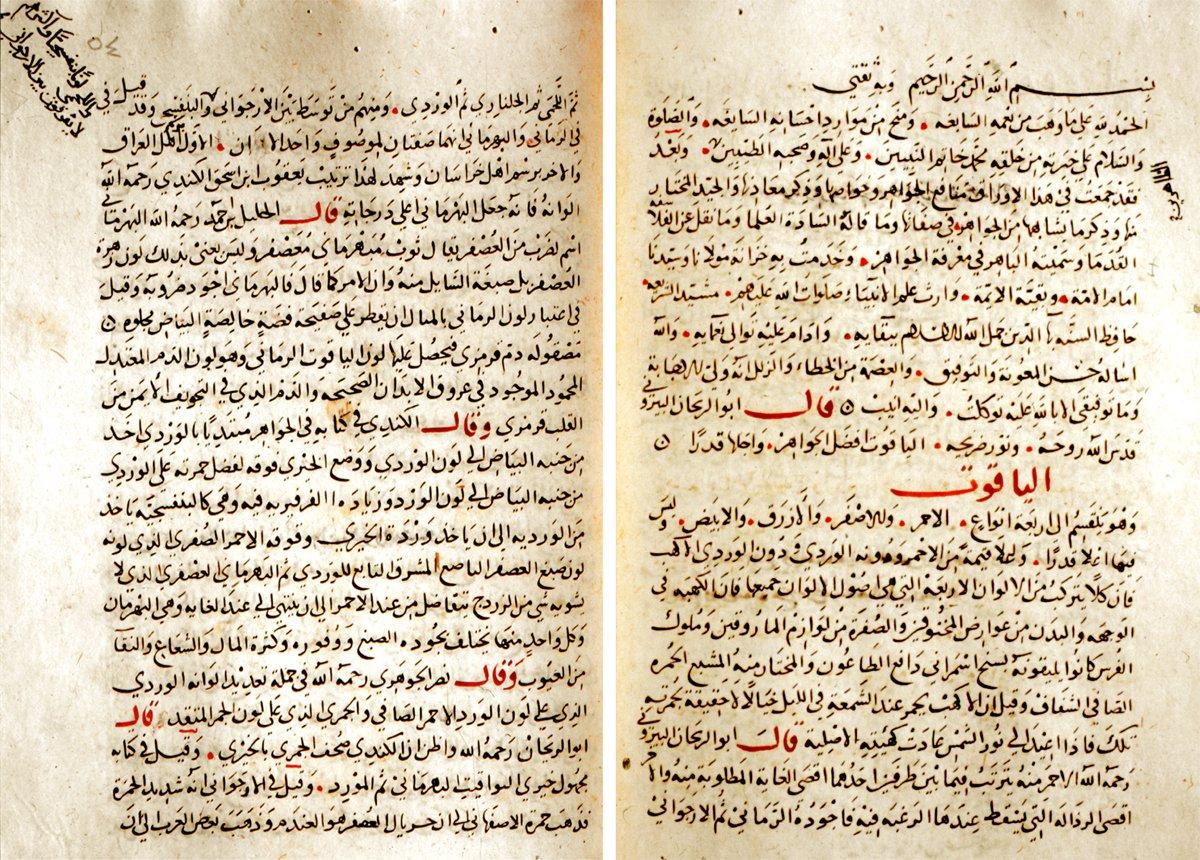 بسم الله الرحمن الرحيم وبه ثقتي
الحمد لله على ما وهب من نعمه السابغه • ومنح من موارد احسانه السايغه • والصلوة
والسلام على خيرته من خلقه محمد خاتم النبيين • وعلى آله وصحبه الطيبين • وبعد
فقد جمعت في هذا الاوراق منافع الجواهر وخواصها وذكر معادنها والجيد المختار
منها وذكر ما يشابهها من الجواهر في صفاتها وما قاله السادة العلما وما نقل عن
القدما وسميته الباهر في معرفة الجواهر • وخدمت به خزانة مولانا وسيدنا
امام الامة • وبقية الايمة • وارث علم الانبياء صلوات الله عليهم • مشيد الشريعة
حافظ السنة الذين جمل الله ببقايه • وادام عليه توالي نعمايه • والله
اساله حسن المعونة والتوفيق • والعصمة من الخطاء والزلل انه ولي
وما توفيقي الا بالله عليه توكلت • واليه انيب ٥ قال ابو الريحان البيروني
قدس الله روحه • ونور ضريحه • الياقوت افضل الجواهر • واجلها قدرا ٥
الياقوت
وهو ينقسم الى اربعة انواع • الاحمر • والاصفر • والازرق • والابيض • وليس
فيها اغلا قدرا • واغلا قيمة من الاحمر ودونه الوردي ودون الوردي الاكهب
فان كلا يتركب من الالوان الاربعة التي هي اصول الالوان جميعها فان الكهبة في
الوجه والبدن من عوارض المخنوقين والصفرة من لوازم الماروقين وملوك
الفرس كانوا يلقبونه بسبج اسمراني دافع الطاعون والمختار منه المشبع الحمره
الصافي الشفاف وقيل ان الاكهب يحمر عند الشمعة في الليل خيالا لا حقيقة لحمرته
تلك فاذا اعيد الى نور الشمس عادت كهبته الاصلية قال ابو الريحان البيروني
رحمه الله الاحمر منه يترتب فيما بين طرفين احدهما اقصى الغاية المطلوبة منه والاخر
اقصى الرذالة التي يسقط عندها الرغبه فيه فاجوده الرماني ثم الارجواني
ثم اللحمي ثم الجلناري ثم الوردي • ومنهم من توسط بين الارجواني والبنفسجي وقد قيل في
في الرماني والبهرماني انهما صفتان لموصوف واحد الا ان • الاول لاهل العراق
والاخر برسم اهل خراسان وشهد لهذا ترتيب يعقوب ابن اسحق الكندي رحمه الله
الوانه فانه جعل البهرماني اعلى درجاته قال الخليل ابن احمد رحمه الله البهرمان
اسم لضرب من العصفر يقال ثوب مبهرم اي معصفر وليس يعني بذلك لون زهرة
العصفر بل صبغة السايل منه وان الامر كما قال فالبهرماني اجود ضروبه وقيل
في اعتبار لون الرماني بالمثال ان يقطر على صفيحة فضة خالصة البياض مجلوه ٥
مصقوله دم قرمزي فيحصل عليها لون الياقوت الرماني وهو لون الدم المعتدل
المحمود الموجود في عروق الابدان الصحيحه والدم الذي في التجويف الايمن من
القلب قرمزي وقال الكندي في كتابه في الجواهر مبتديا بالوردي اخذ
من جنبه البياض الى لون الوردي ووضع الخيري فوقه لفضل حمرته على الوردي
من جنبه البياض الى لون الورد وزياده الفرفيريه فيه وهي كالبنفسجيه ياخذ
من الورديه الى ان ياخذ وردة الخيري • وفوقه الاحمر العصفري الذي لونه
لون صبغ العصفر الناصع المشرق التابع للوردي ثم البهرماني العصفري الذي لا
يشوبه شي من الزردج يتفاضل من عند الاحمر الى ان ينتهي الى عند الغايه وهي البهرمان
وكل واحد منها يختلف بجوده الصبغ ووفوره وكثرة الماء والشعاع والنقا
من العيوب وقال نصر الجوهري رحمه الله في جملة تعديد الوانه الوردي
الذي على لون الورد الاحمر الصافي والجمري الذي على لون الجمر المتقد قال
ابو الريحان رحمه الله واظن ان الكندي صحف الجمري بالخيري • وقيل في كتابه
مجهول خيري اليواقيت البهرماني ثم المورد • وقيل في الارجواني انه شديد الحمرة
فذهب حمزة الاصفهاني الى ان جريال العصفر هو العندم وذهب بعض العرب الى ان